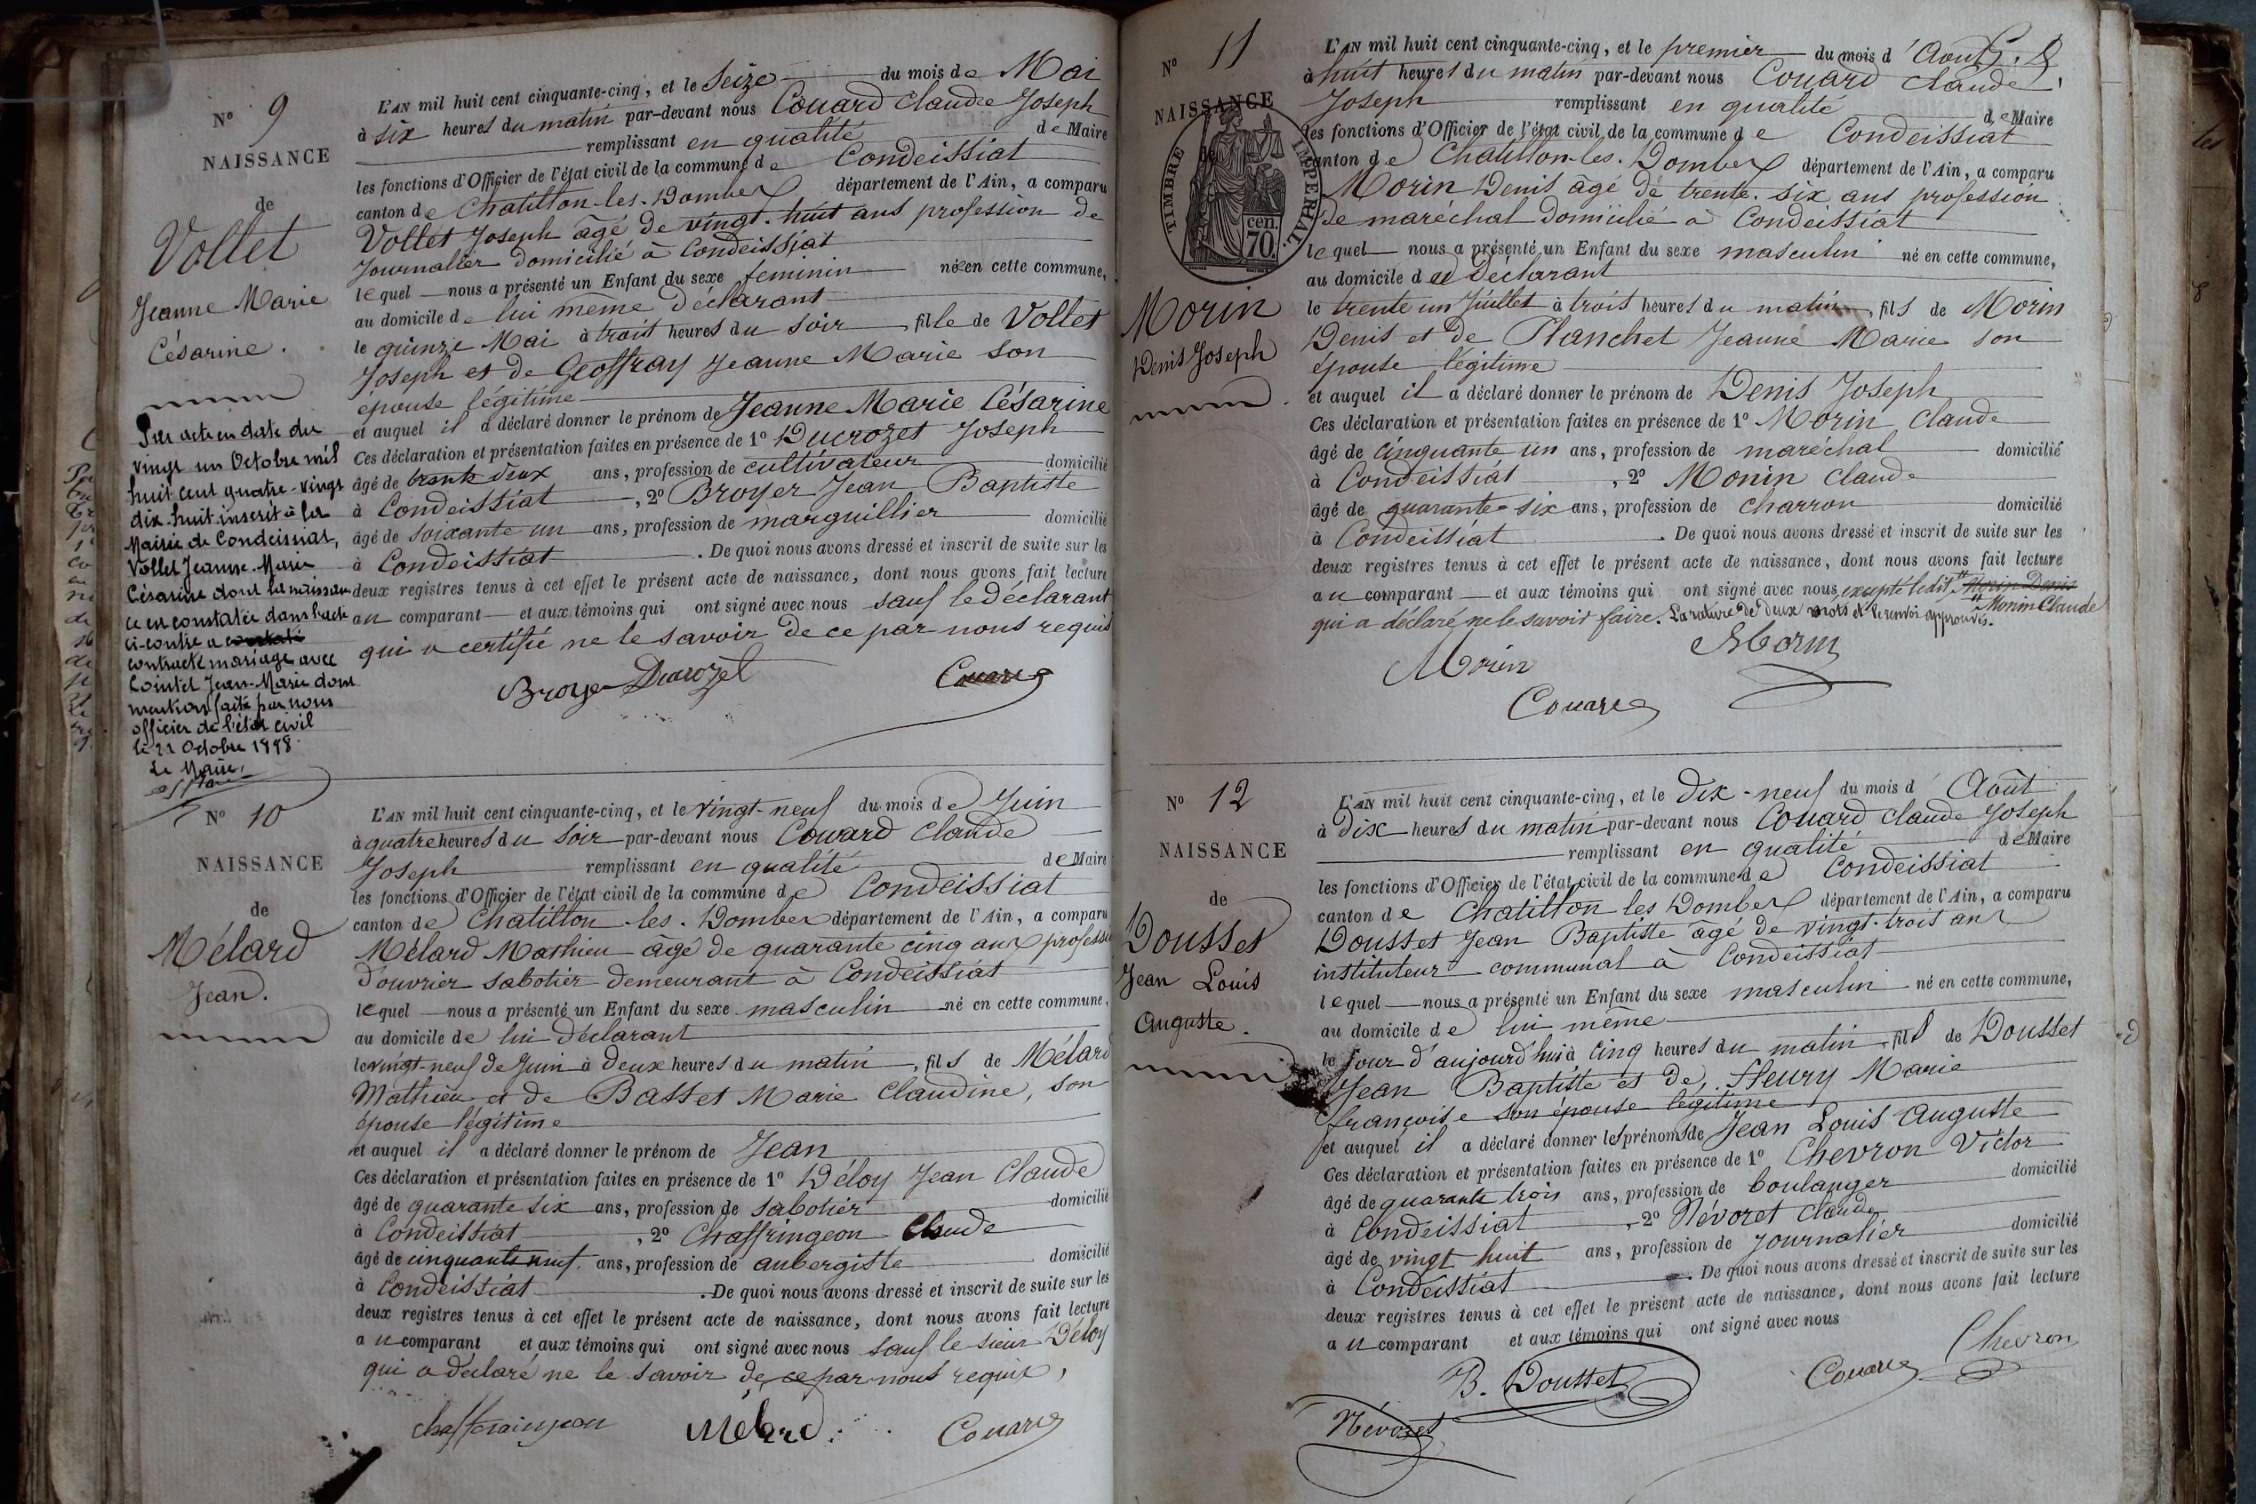 N° 9
NAISSANCE
de
Vollet
Jeanne Marie
Césarine.
Par acte en date du
vingt un Octobre mil
huit cent quatre-vingt
dix-huit inscrit à la
Mairie de Condeissiat,
Vollet Jeanne-Marie
Césarine dont la naissan
ce est constatée dans l'acte
ci-contre a
contracté mariage avec
Cointet Jean-Marie dont
mention faite par nous
officier de l'état civil
le 21 Octobre 1898.
Le Maire,
L'AN mil huit cent cinquante-cinq, et le seize du mois de Mai
à six heures du matin par-devant nous Couard Claude Joseph
remplissant en qualité de Maire
les fonctions d'Officier de l'état civil de la commune de Condeissiat
canton de Chatillon-les-Dombes département de l'Ain, a comparu
Vollet Joseph âgé de vingt-huit ans profession de
Journalier domicilié à Condeissiat
lequel nous a présenté un Enfant du sexe feminin née en cette commune,
au domicile de lui même déclarant
le quinze Mai à trois heures du soir, fille de Vollet
Joseph et de Geoffray Jeanne Marie son
épouse légitime
et auquel il a déclaré donner le prénom de Jeanne Marie Césarine
Ces déclaration et présentation faites en présence de 1° Ducrozet Joseph
âgé de trente deux ans, profession de cultivateur domicilié
à Condeissiat, 2° Broyer Jean Baptiste
âgé de soixante un ans, profession de marguillier domicilié
à Condeissiat. De quoi nous avons dressé et inscrit de suite sur les
deux registres tenus à cet effet le présent acte de naissance, dont nous avons fait lecture
au comparant et aux témoins qui ont signé avec nous sauf le déclarant
qui a certifié ne le savoir de ce par nous requis
Broyer Ducrozet Couard
N° 10
NAISSANCE
de
Mélard
Jean.
L'AN mil huit cent cinquante-cinq, et le vingt-neuf du mois de Juin
à quatre heures du soir par-devant nous Couard Claude
Joseph remplissant en qualité de Maire
les fonctions d'Officier de l'état civil de la commune de Condeissiat
canton de Chatillon-les-Dombes département de l'Ain, a comparu
Mélard Mathieu agé de quarante cinq ans professi
d'ouvrier sabotier demeurant à Condeissiat
lequel nous a présenté un Enfant du sexe masculin né en cette commune,
au domicile de lui déclarant
le vingt-neuf de Juin à deux heures du matin, fils de Mélard
Mathieu et de Basset Marie Claudine, son
épouse légitime
et auquel il a déclaré donner le prénom de Jean
Ces déclaration et présentation faites en présence de 1° Déloy Jean Claude
âgé de quarante six ans, profession de sabotier domicilié
à Condeissiat, 2° Chaffringeon Claude
âgé de cinquante neuf ans, profession de aubergiste domicilié
à Condeissiat. De quoi nous avons dressé et inscrit de suite sur les
deux registres tenus à cet effet le présent acte de naissance, dont nous avons fait lecture
au comparant et aux témoins qui ont signé avec nous sauf le sieur Déloy
qui a déclaré ne le savoir de ce par nous requis,
Chaffraingeon Mélard Couard
N° 11
NAISSANCE
de
TIMBRE IMPERIAL.
70 cen.
Morin
Denis Joseph
L'AN mil huit cent cinquante-cinq, et le premier du mois d'Aout
à huit heures du matin par-devant nous Couard Claude
Joseph remplissant en qualité de Maire
les fonctions d'Officier de l'état civil de la commune de Condeissiat
canton de Chatillon-les-Dombes département de l'Ain, a comparu
Morin Denis âgé de trente-six ans profession
de maréchal domicilié à Condeissiat
lequel nous a présenté un Enfant du sexe masculin né en cette commune,
au domicile du Déclarant
le trente un Juillet à trois heures du matin, fils de Morin
Denis et de Planchet Jeanne Marie son
épouse légitime
et auquel il a déclaré donner le prénom de Denis Joseph
Ces déclaration et présentation faites en présence de 1° Morin Claude
âgé de cinquante un ans, profession de maréchal domicilié
à Condeissiat, 2° Monin Claude
âgé de quarante-six ans, profession de charron domicilié
à Condeissiat. De quoi nous avons dressé et inscrit de suite sur les
deux registres tenus à cet effet le présent acte de naissance, dont nous avons fait lecture
au comparant et aux témoins qui ont signé avec nous excepté ledit Morin Denis
"Monin Claude
qui a déclaré ne le savoir faire. La rature de deux mots et le renvoi approuvés.
Morin Morin
Couard
N° 12
NAISSANCE
de
Dousset
Jean Louis
Auguste.
L'AN mil huit cent cinquante-cinq, et le dix-neuf du mois d'Août
à dix heures du matin par-devant nous Couard Claude Joseph
remplissant en qualité de Maire
les fonctions d'Officier de l'état civil de la commune de Condeissiat
canton de Chatillon les Dombes département de l'Ain, a comparu
Dousset Jean Baptiste âgé de vingt-trois ans
instituteur communal à Condeissiat
lequel nous a présenté un Enfant du sexe masculin né en cette commune,
au domicile de lui même
le jour d'aujourd'hui à cinq heures du matin, fils de Dousset
Jean Baptiste et de, Fleury Marie
françoise son épouse légitime
et auquel il a déclaré donner les prénoms de Jean Louis Auguste
Ces déclaration et présentation faites en présence de 1° Chevron Victor
âgé de quarante trois ans, profession de boulanger domicilié
à Condeissiat, 2° Névoret Claude
âgé de vingt huit ans, profession de journalier domicilié
à Condeissiat. De quoi nous avons dressé et inscrit de suite sur les
deux registres tenus à cet effet le présent acte de naissance, dont nous avons fait lecture
au comparant et aux témoins qui ont signé avec nous
B. Dousset Couard Chevron
Névoret